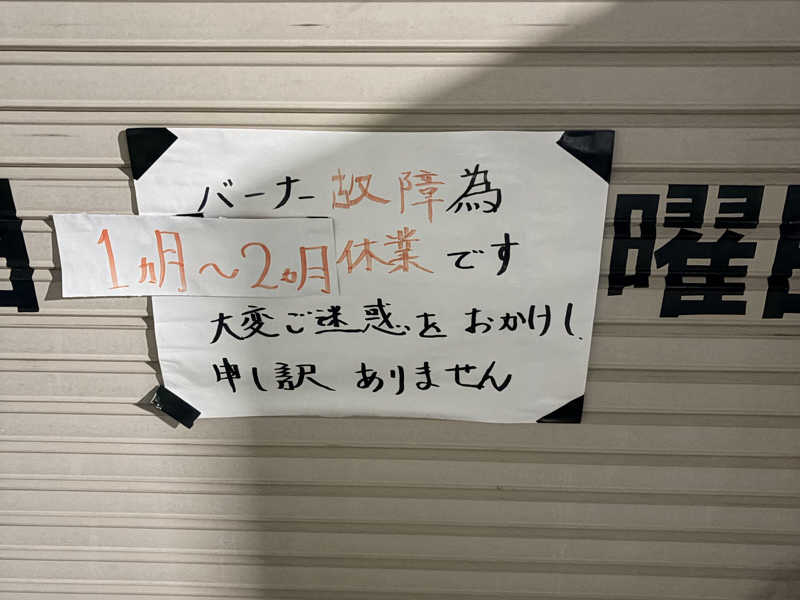 バーナー故障為
1ヵ月～2ヵ月休業です
大変ご迷惑をおかけし
申し訳ありません
曜